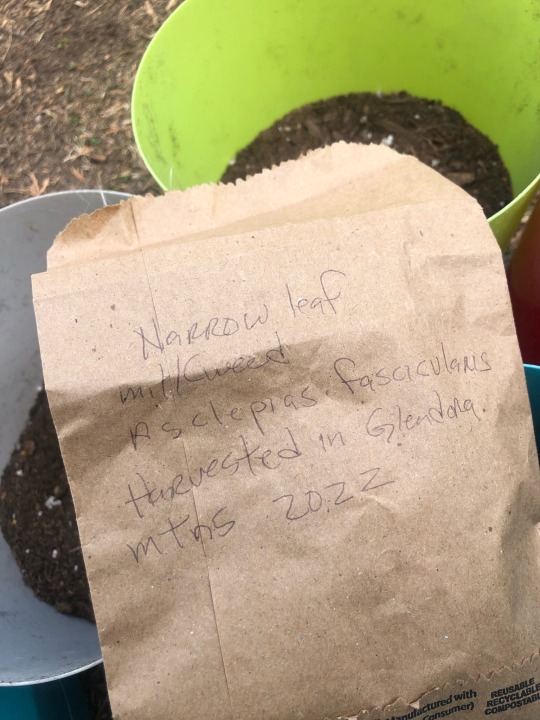 Narrow leaf
milkweed
Asclepias. fascicularis
Harvested in Glendora
mtns 2022
Manufactured with
Consumer)
REUSABLE
RECYCLABLE
COMPOSTABLE